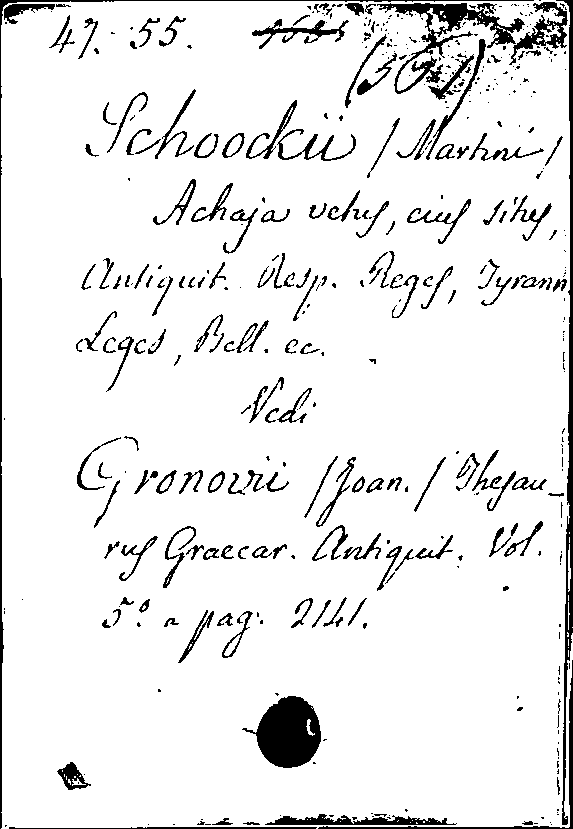 47. 55.
(551)
Schoockii /Martini/
Achaja vetus, eius situs,
Antiquit. Resp. Reges, Tyrann.
Leges, Bell. ec.
Vedi
Gronovii /Joan./ Thesau-
rus Graecar. Antiquit. Vol.
5º a pag. 2141.